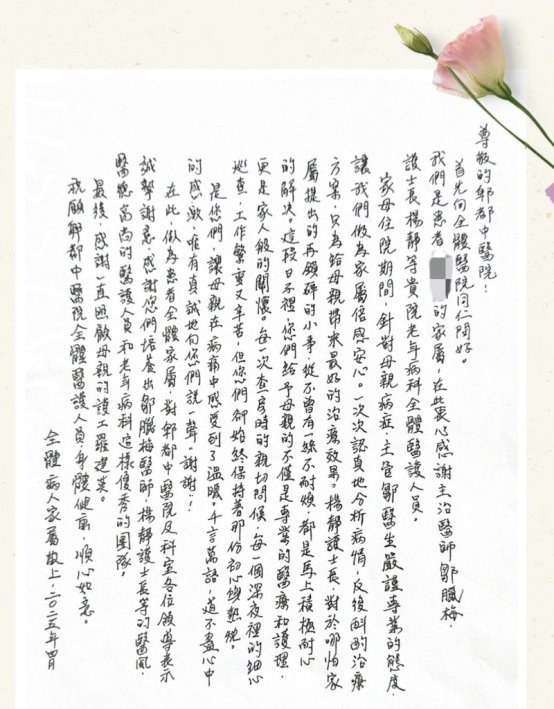 尊敬的郫都中醫院：
首先向全體醫院同仁問好。
我們是患者的家屬，在此衷心感謝主治醫師鄒臘梅，
護士長楊靜等貴院老年病科全體醫護人員。
家母住院期間，針對母親病症，主管鄒醫生嚴謹專業的態度，
讓我們做為家屬倍感安心。一次次認真地分析病情，反復斟酌治療
方案，只為給母親帶來最好的治療效果。楊靜護士長，對於哪怕家
屬提出的再瑣碎的小事，從不曾有一絲不耐煩，都是馬上積極耐心
的解决。這段日子裡，您們給予母親的不僅是專業的醫療和護理，
更是家人般的關懷，每一次查房時的親切問候，每一個深夜裡的細心
巡查，工作繁重又辛苦，但您們卻始終保持著那份初心與熱忱。
是您們，讓母親在病痛中感受到了温暖。千言萬語，道不盡心中
的感激，唯有真誠地向您們說一聲“謝謝”！
在此，做為患者全體家屬，對郫都中醫院及科室各位領導表示
誠摯謝意，感謝您們培養出鄒臘梅醫師，楊靜護士長等的醫風，
醫德高尚的醫護人員和老年病科這樣優秀的團隊。
最後，感謝一直照顧母親的護工羅建英。
祝願郫都中醫院全體醫護人員身體健康，順心如意。
全體病人家屬敬上，二〇二五年四月